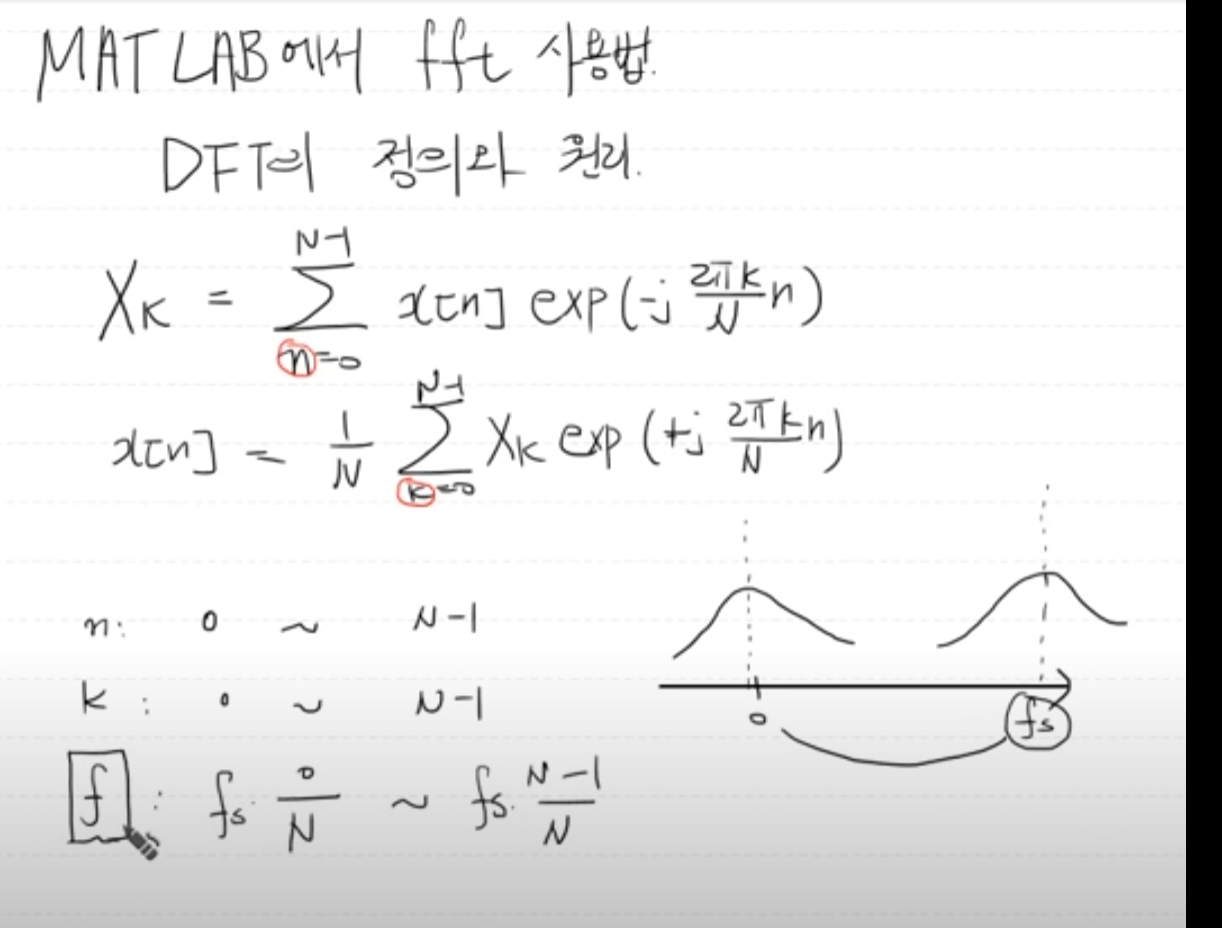 MATLAB에서 fft 사용법.
DFT의 정의와 원리.
X_K = \sum_{n=0}^{N-1} x[n] exp(-j \frac{2πk}{N} n)
x[n] = \frac{1}{N} \sum_{k=0}^{N-1} X_K exp(+j \frac{2πk}{N} n)
n: 0 ~ N-1
k: 0 ~ N-1
f: fs· \frac{0}{N} ~ fs· \frac{N-1}{N}
0 fs